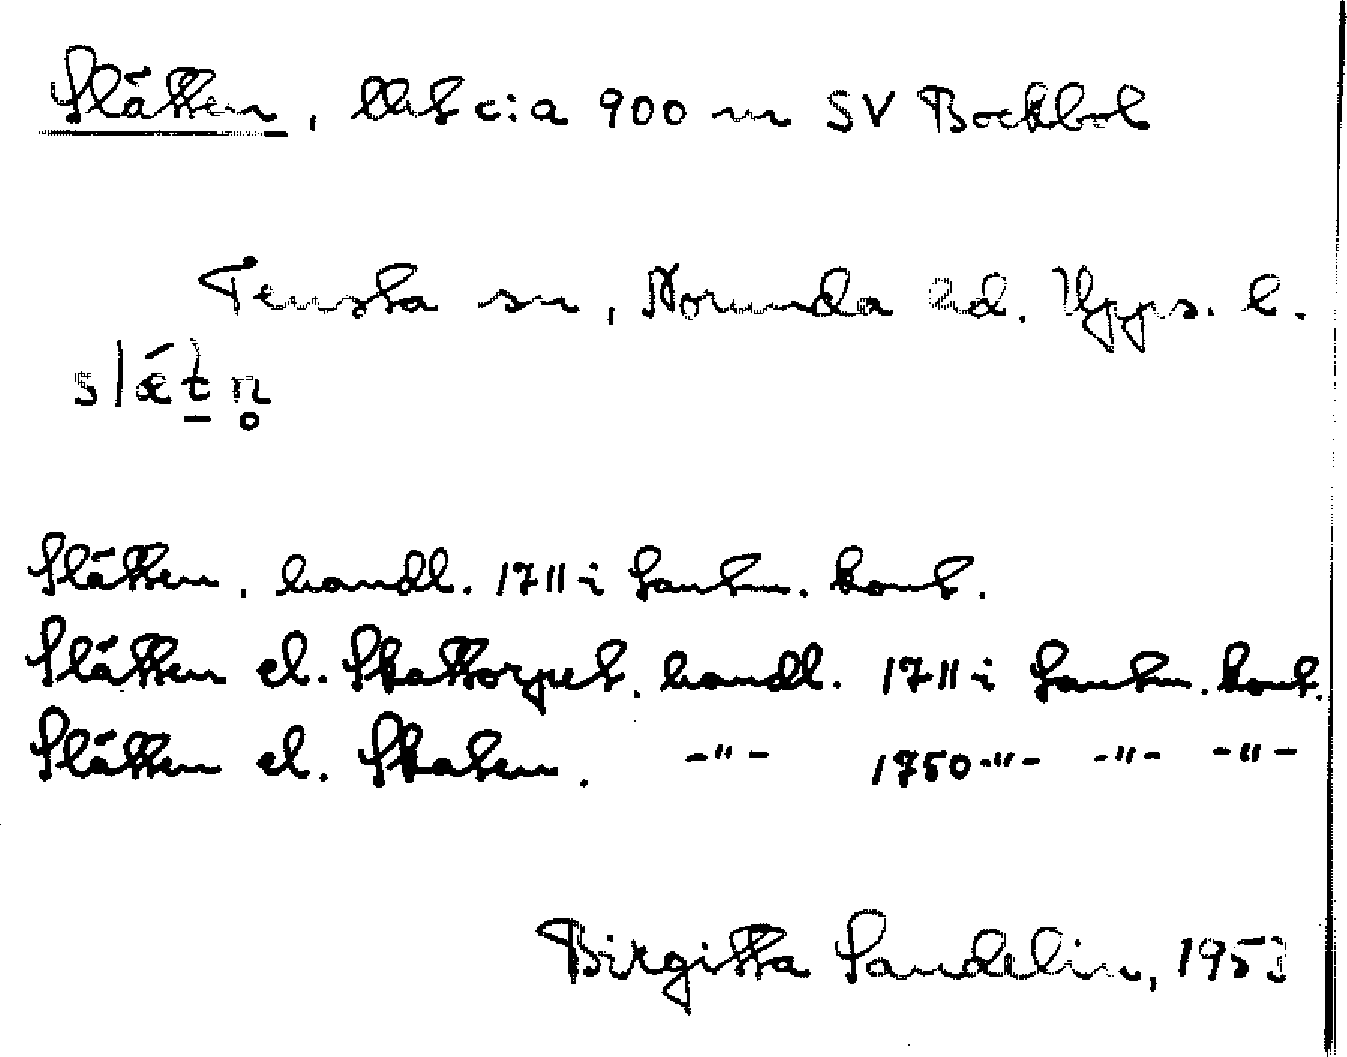 Slätten, lht c:a 900 m SV Bockbol
Tensta sn, Norunda hd. Upps. l.
slǽt̠n̥
Slätten, handl. 1711 i Lantm. kont.
Slätten el. Skattorpet, handl. 1711 i Lantm. kont.
Slätten el. Skaten. -"- 1750 -"- -"- -"-
Birgitta Sandelin, 1953